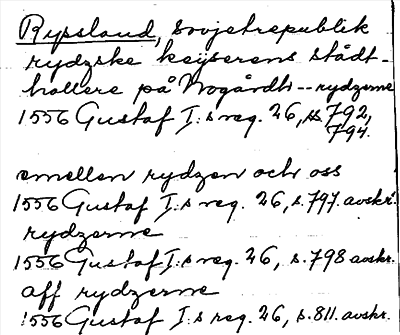 Ryssland, Sovjetrepublik
rydzske keijserens stådt-
hallere på Nogårdh -- rydzerne
1556 Gustaf I:s reg. 26, ss 792,
794.
emellen rydzen och oss
1556 Gustaf I:s reg. 26, s. 797. avskr.
rydzerne
1556 Gustaf I:s reg. 26, s. 798 avskr.
aff rydzerne
1556 Gustaf I:s reg. 26, s. 811. avskr.